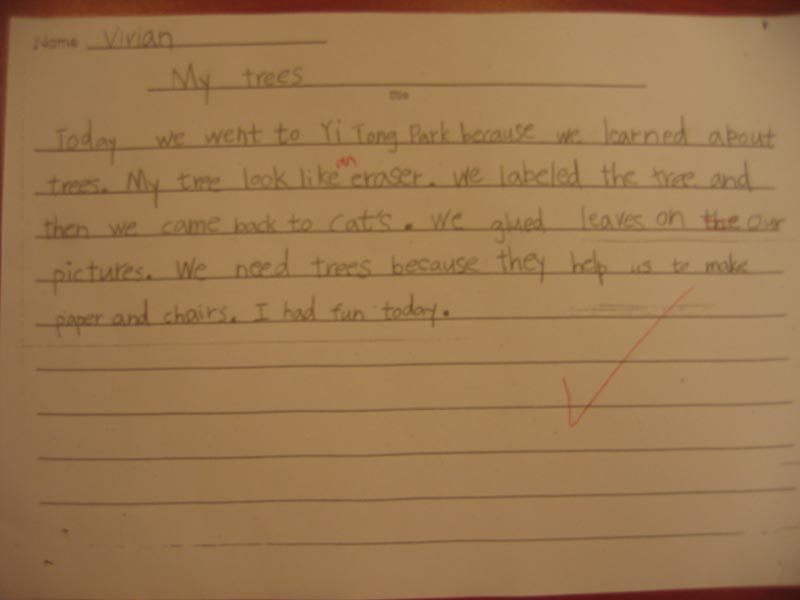 Name Vivian
My trees
Title
Today we went to Yi Tong Park because we learned about
trees. My tree look like an eraser. We labeled the tree and
then we came back to Cat's. We glued leaves on the our
pictures. We need trees because they help us to make
paper and chairs. I had fun today.